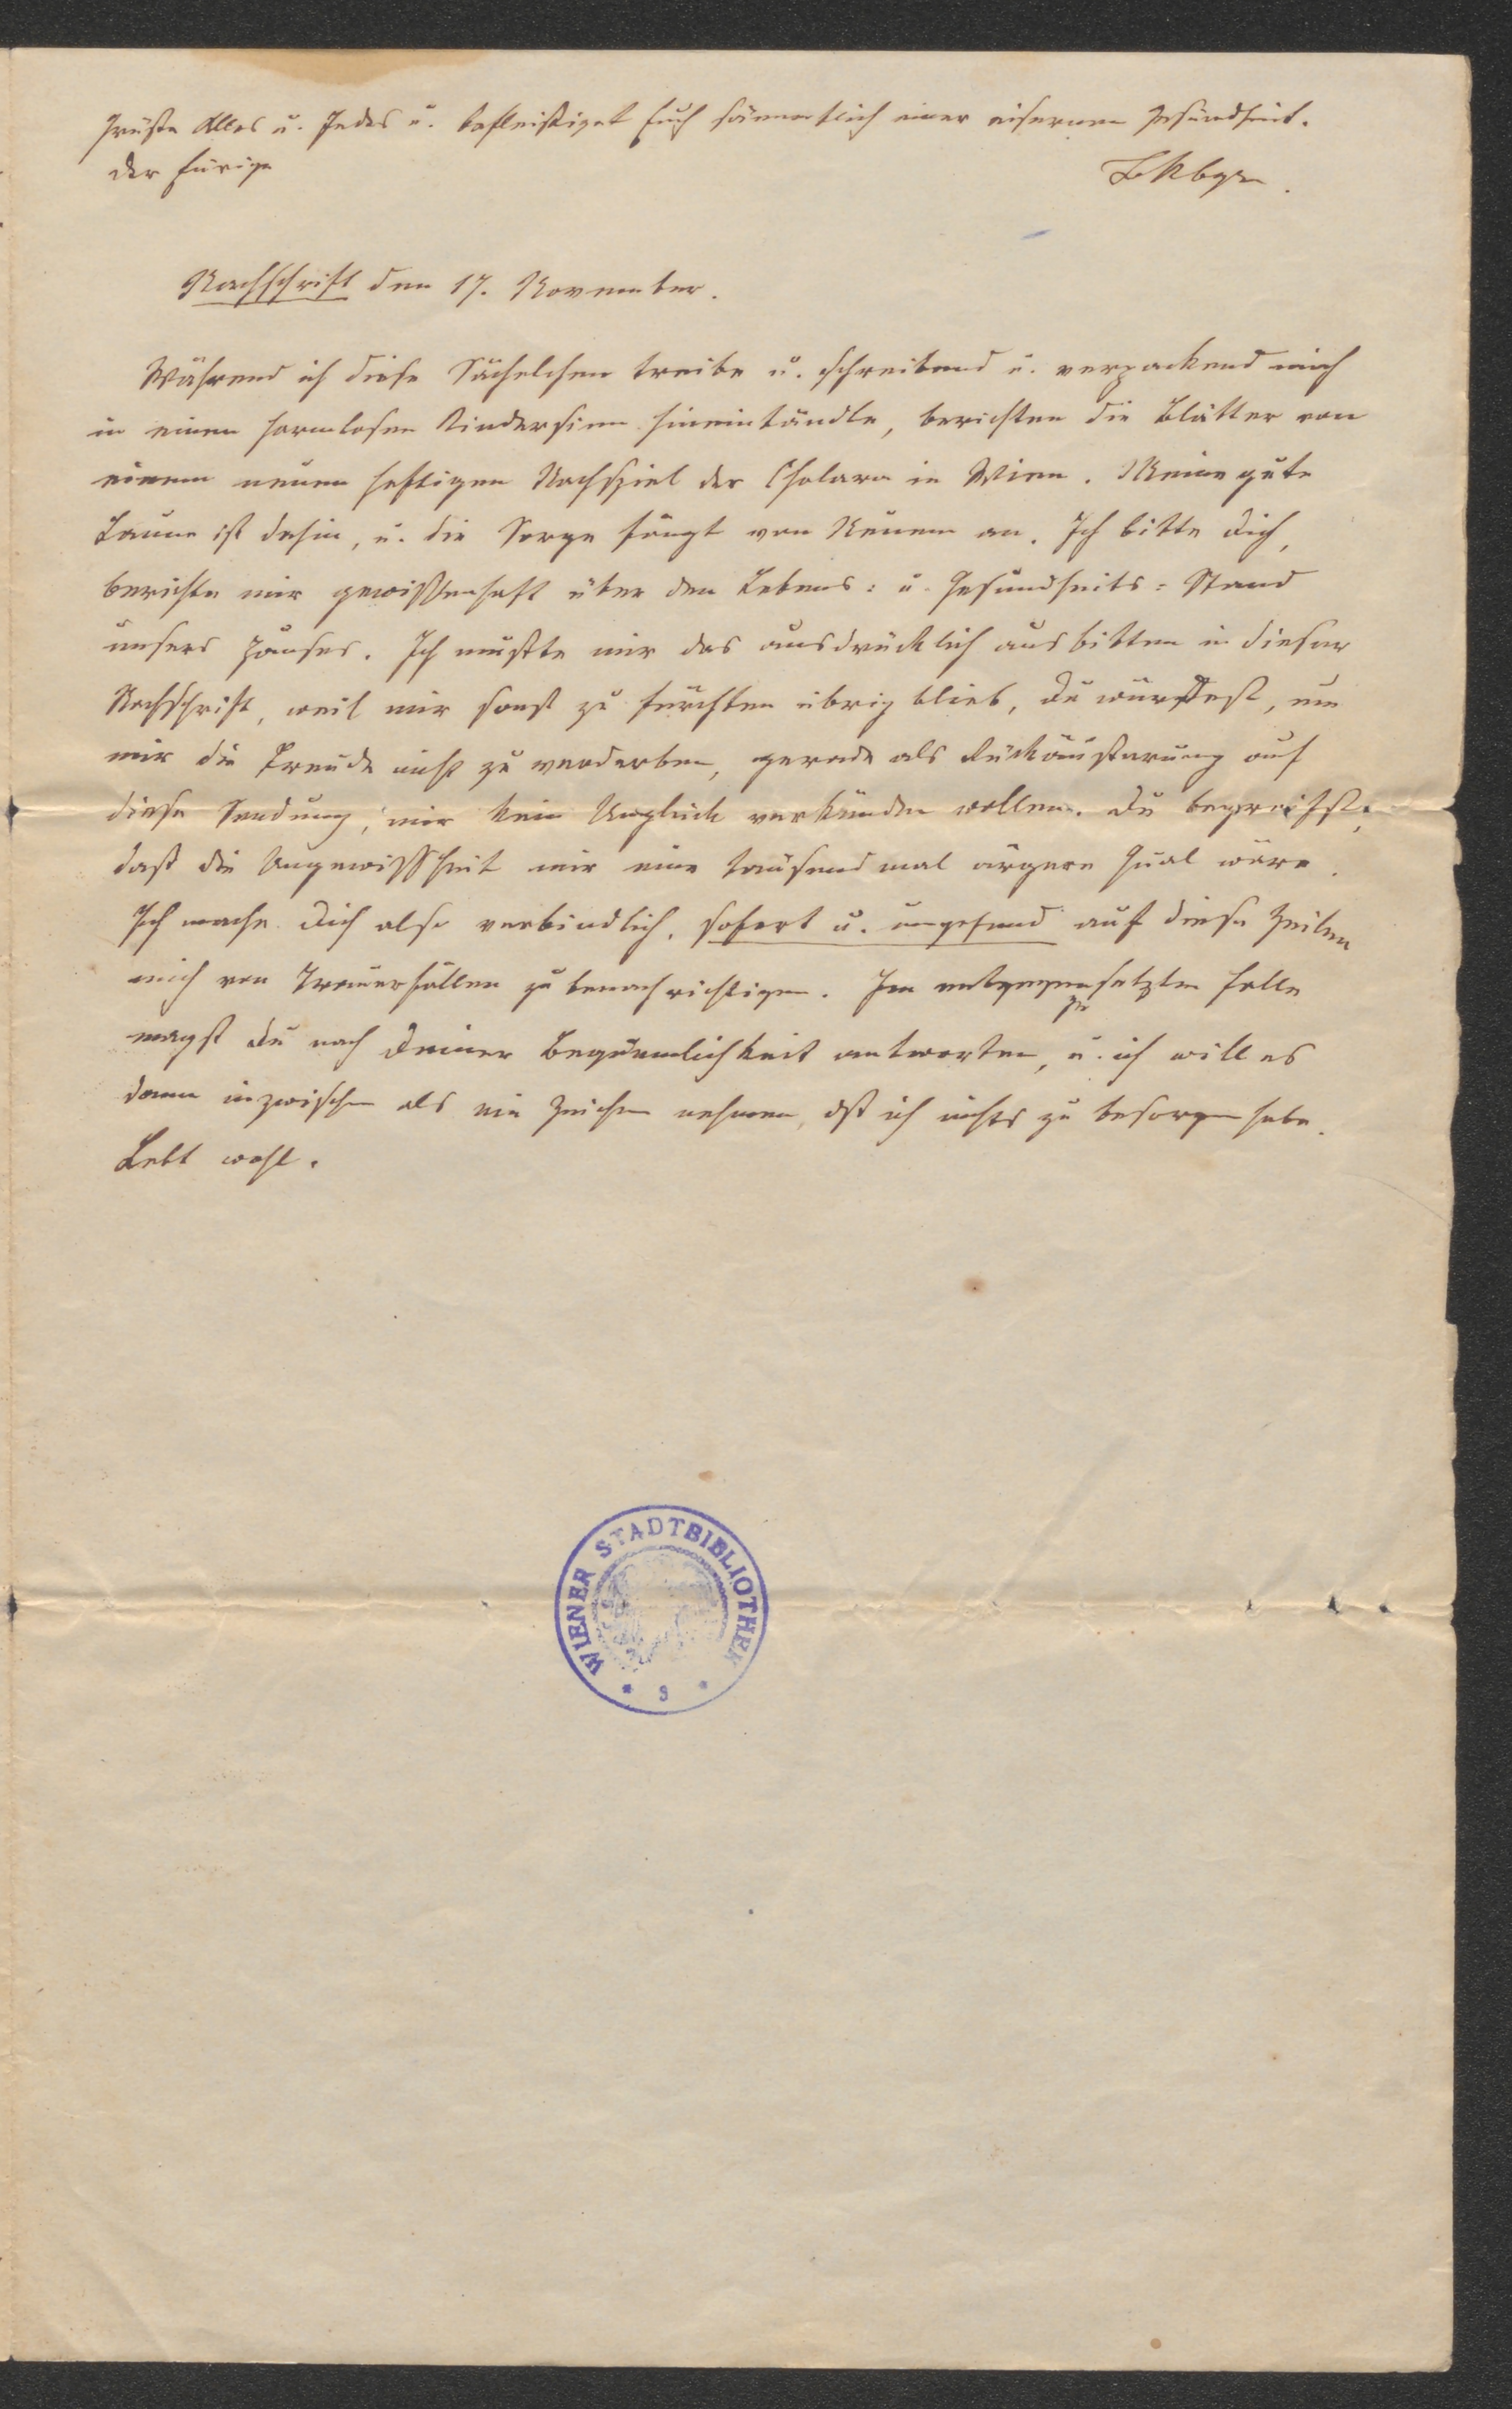 Grüße Alles u. Jedes u. befleißiget Euch sämmtlich einer eisernen Gesundheit.
Der Eurige
Kbgr.
Nachschrift den 17. November.
Während ich diese Sächelchen treibe u. schreibend u. verpackend mich
in einen harmlosen Kindersinn hineintändle, berichten die Blätter von
einem neuen heftigen Nachspiel der Cholera in Wien. Meine gute
Laune ist dahin, u. die Sorge fängt von Neuem an. Ich bitte Dich,
berichte mir gewissenhaft über den Lebens- u. Gesundheits-Stand
unsers Hauses. Ich mußte mir das ausdrücklich ausbitten in dieser
Nachschrift, weil mir sonst zu fürchten übrig blieb, Du würdest, um
mir die Freude nicht zu verderben, gerade als Rückäußerung auf
diese Sendung, mir kein Unglück verkünden wollen. Du begreifst,
daß die Ungewißheit mir eine tausendmal ärgere Qual wäre.
Ich mache Dich also verbindlich, sofort u. umgehend auf diese Zeilen
mich von Trauerfällen zu benachrichtigen. Im entgegengesetzten Falle
magst Du nach Deiner Bequemlichkeit antworten, u. ich will es
dann inzwischen als ein Zeichen nehmen, dß ich nichts zu besorgen habe.
Lebt wohl.
WIENER STADTBIBLIOTHEK
* S *